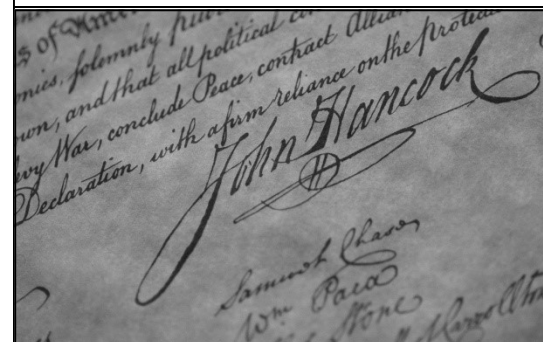 s of Ame
solemnly
and that all political co
War, conclude Peace, contract Allian
Declaration, with a firm reliance on the protec
John Hancock
Samuel Chase
Wm Paca
Stone